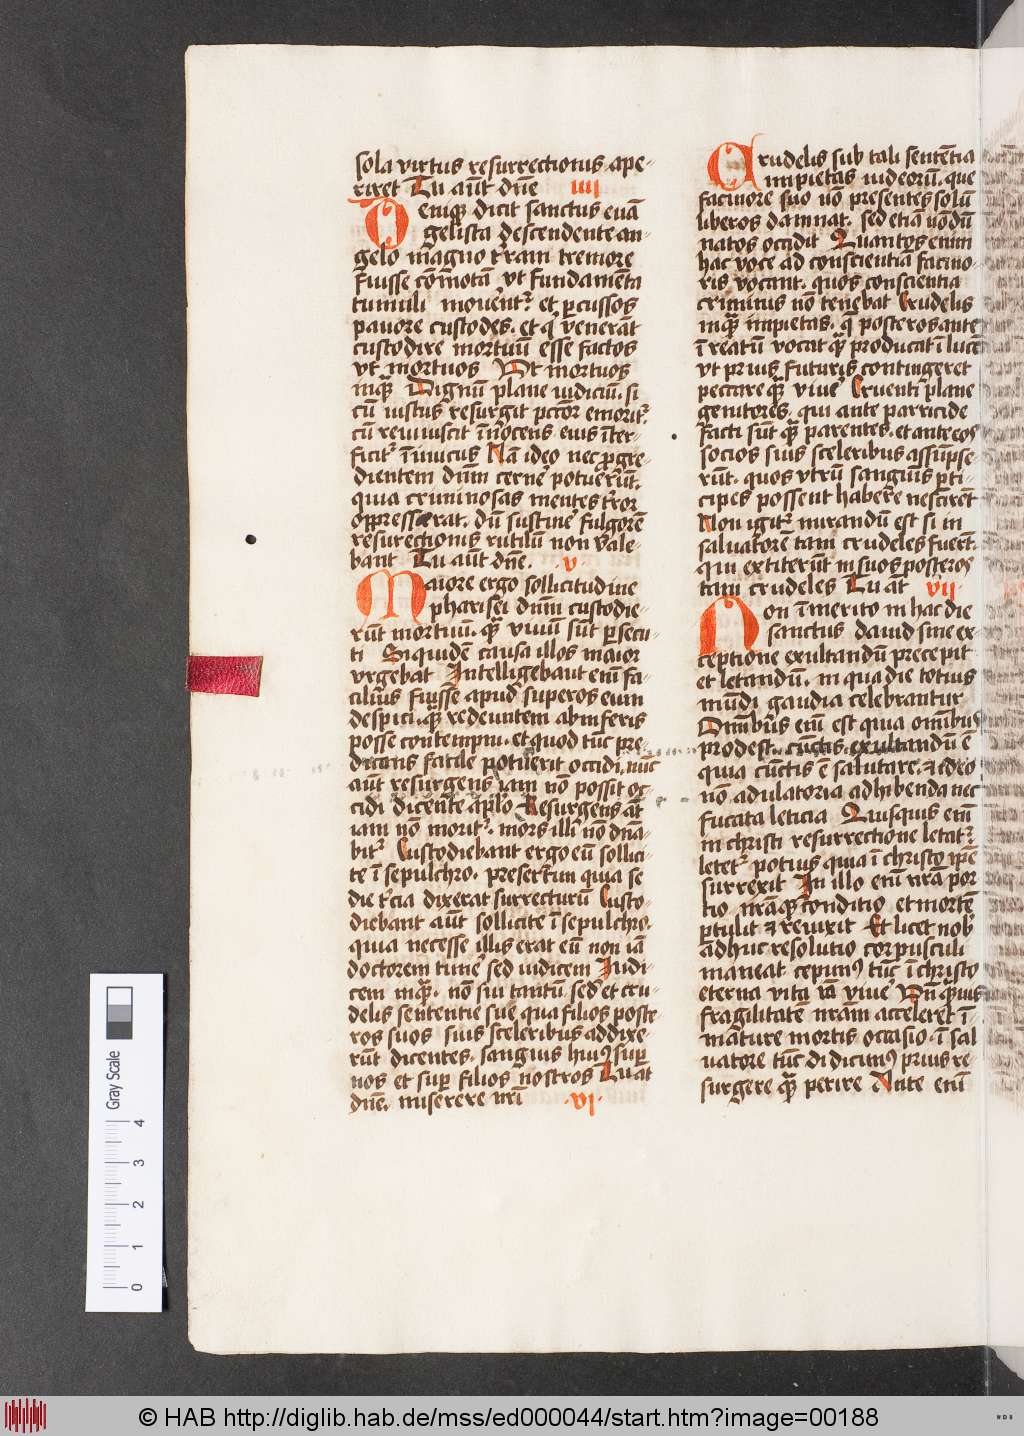 sola virtus resurrectionis ape-
riret Tu aūt dn̄e iiii
Deniqꝫ dicit sanctus euā
gelista descendente an-
gelo magno t̄ram tremore
fuisse com̄otā vt fundamēta
tumuli mouent᷑ et ꝑcussos
pauore custodes, et q̄ venerāt
custodire mortuū esse factos
vt mortuos Vt mortuos
inqꝫ Dignū plane iudiciū, si
cū iustus resurgit pctōr emorit᷑
cū reuiuiscit īnocens eius īter-
ficit᷑ īimicus Nā ideo nec ꝓgre-
dientem dn̄m cerne᷑ potuerūt,
quia criminosas mentes t̄ror
oppresserat, dū sustine᷑ fulgorē
resurectionis rutilū non vale-
bant Tu aūt dn̄e. v
Maiore ergo sollicitudine
pharisei dn̄m custodie-
rūt mortuū, qꝫ viuū sūt ꝑsecu
ti Siquidē causa illos maior
vrgebat Intelligebant em̄ fa-
cilius fuisse apud superos eum
despici, qꝫ redeuntem ab inferis
posse contempni, et quod tūc pre-
dicans facile potuerit occidi, nūc
aūt resurgens iam nō possit oc-
cidi dicente apl̄o Resurgens āt
iam nō morit᷑, mors illi nō dn̄a-
bit᷑ Custodiebant ergo eū sollici-
te ī sepulchro, presertim quia se
die t̄cia dixerat surrecturū Custo-
diebant aūt sollicite ī sepulchro,
quia necesse illis erat eū non iā
doctorem time᷑ sed iudicem Iudi-
cem inqꝫ, nō sui tantū sed et cru-
delis sententie sue, qua filios poste-
ros suos suis sceleribus addixe-
rūt dicentes, sanguis huiꝰ sup̄
nos et sup̄ filios nostros Tu āt
dn̄e, miserere nr̄i vi
Crudelis sub tali sentētia
impietas iudeorū, que
facinore suo nō presentes solū
liberos damnat, sed etiā nōdū
natos occidit Quantos enim
hac voce ad conscientiā facino-
ris vocant, quos conscientia
criminis nō tenebat Crudelis
inqꝫ impietas, q̄ posteros ante
ī reatū vocat qꝫ producat ī lucē
vt prius futuris contingeret
peccare qꝫ viue᷑ Cruenti plane
genitores, qui ante parricide
facti sūt qꝫ parentes, et ante eos
socios suis sceleribus assūpse
rūt, quos vtrū sanguīs ꝑti-
cipes possent habere nescirēt
Non igit᷑ mirandū est si in
saluatorē tam crudeles fuerūt,
qui extiterūt in suos posteros
tam crudeles Tu āt vii
Non īmerito in hac die
sanctus dauid sine ex-
ceptione exultandū precepit
et letandū, in qua die totius
mūdi gaudia celebrantur
Omībus em̄ est quia omībus
prodest, cūctis exultandū ē
quia cūctis ē salutare, et ideo
nō adulatoria adhibenda nec
fucata leticia Quisquis em̄
in christi resurrectione letat᷑
letet᷑ potius quia ī christo ip̄e
surrexit In illo em̄ nr̄ā por
tio nr̄āqꝫ conditio et mortē
ꝑtulit et reuixit Et licet nob̄
adhuc resolutio corpusculi
maneat cepimꝰ tūc ī christo
eterna vita iā viue᷑ Dn̄ qꝫuis
fragilitatē nr̄am acceleret ī-
mature mortis occasio, ī sal
uatore tūc didicimꝰ prius re-
surgere qꝫ perire Ante em̄
Gray Scale
4
3
2
1
0
© HAB http://diglib.hab.de/mss/ed000044/start.htm?image=00188